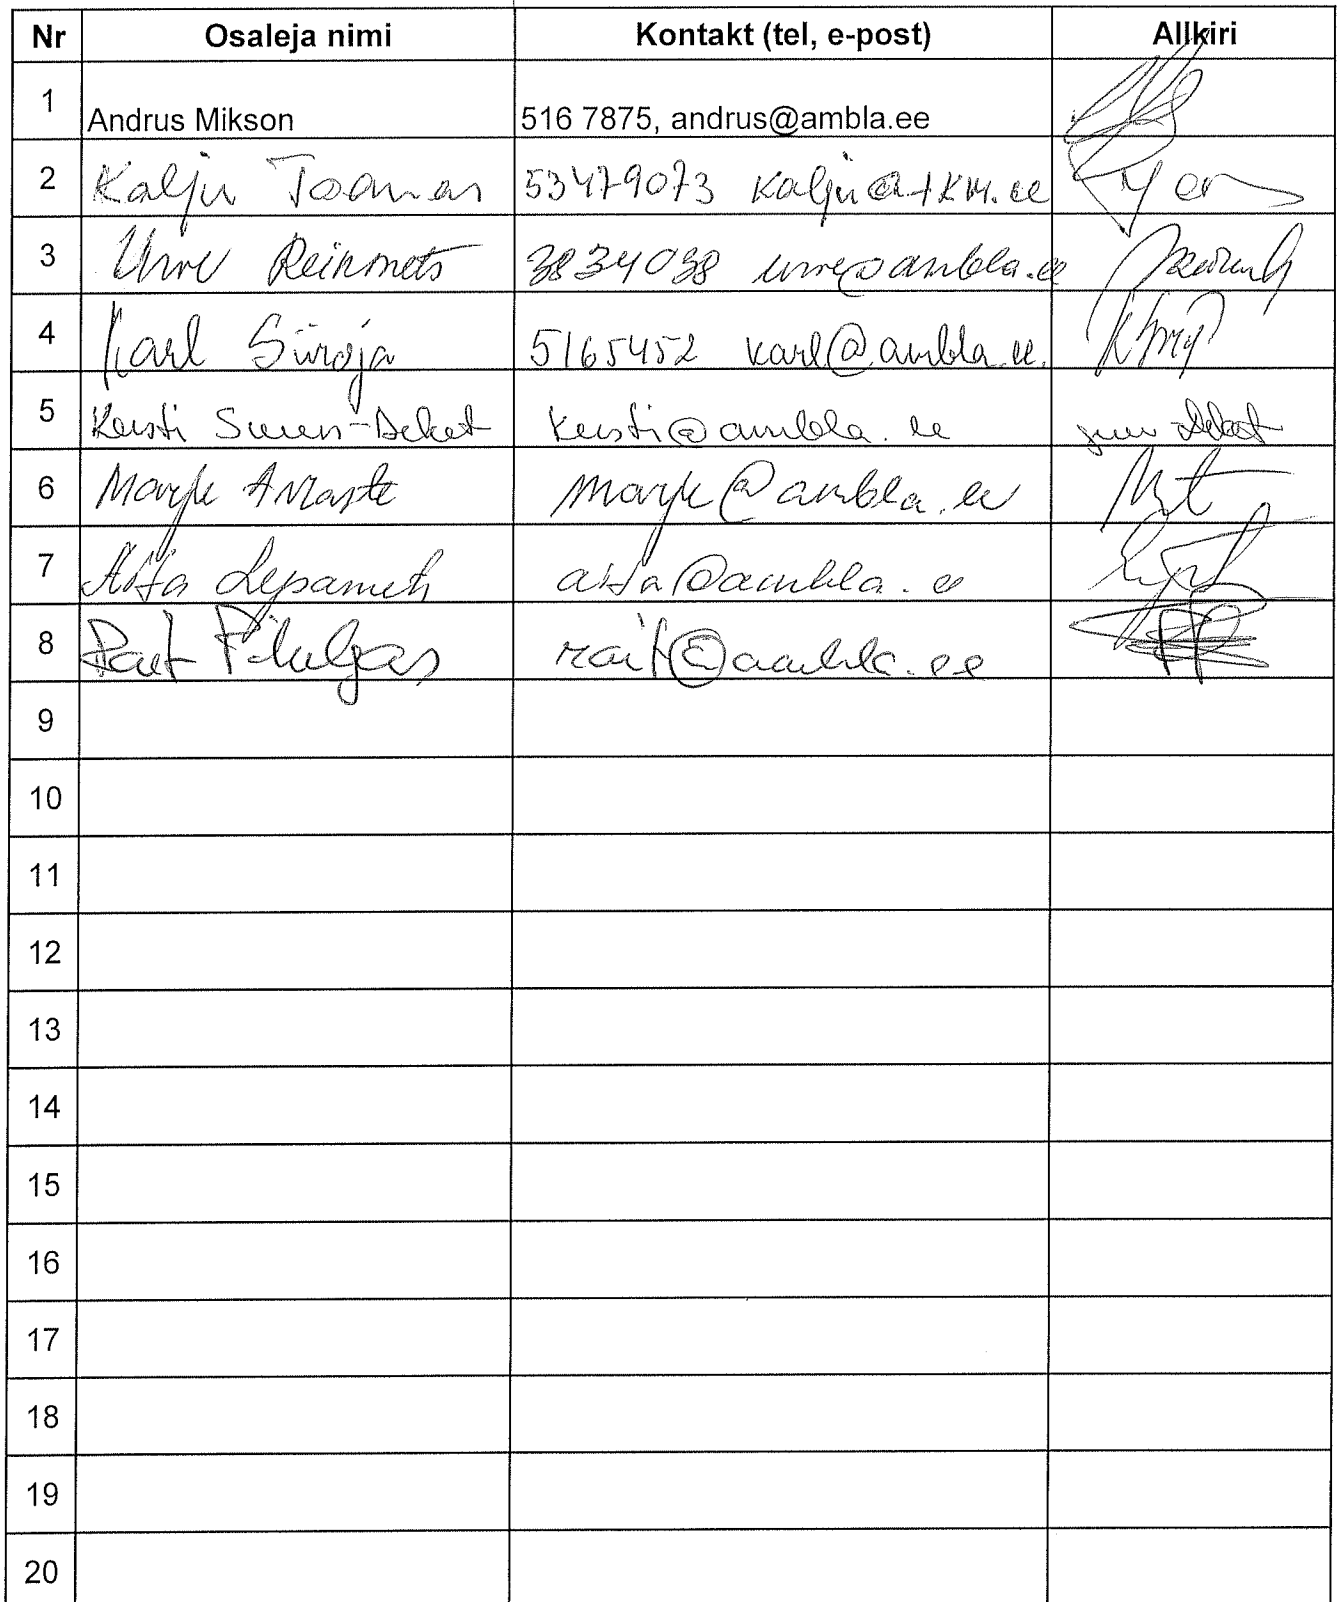 Nr Osaleja nimi Kontakt (tel, e-post) Allkiri
1 Andrus Mikson 516 7875, andrus@ambla.ee
2 Kalju Toomas 53479073 kalju@tkm.ee
3 Urve Reinmets 3834038 urve@ambla.ee
4 Karl Siiroja 5165452 karl@ambla.ee
5 Kersti Suun-Deket kersti@ambla.ee
6 Marge Armaste marge@ambla.ee
7 Aita Lepamets aita@ambla.ee
8 Rait Pihelgas rait@ambla.ee
9
10
11
12
13
14
15
16
17
18
19
20